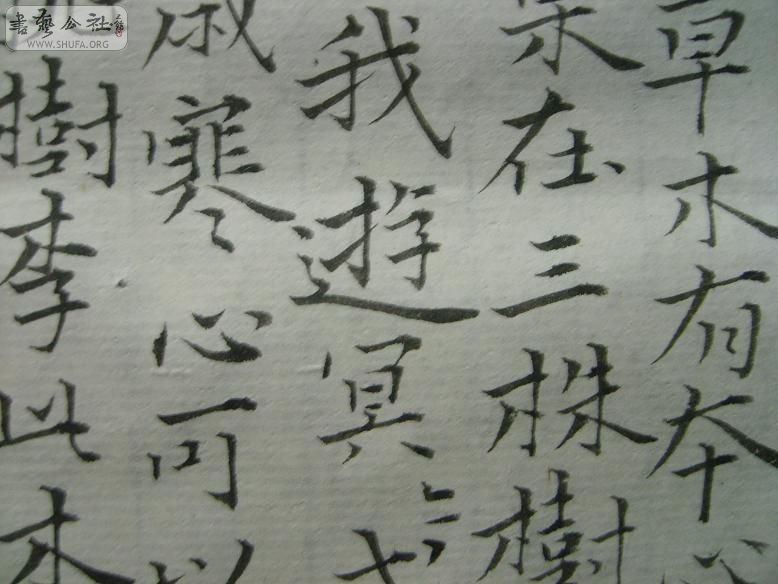 書藝公社
WWW.SHUFA.ORG
草木有本心
巢在三株樹
我遊冥〻弋
歲寒心可以
樹李此木